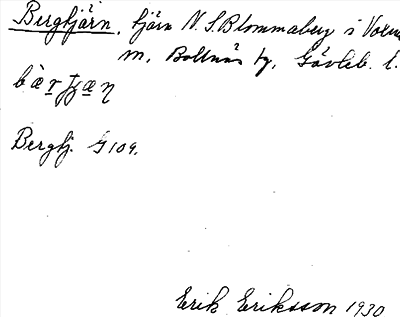 Bergtjärn, tjärn N. S. Blommaberg i Voxna
m. Bollnäs tg, Gävleb. l.
bærtjæṇ
Bergtj. G 109.
Erik Eriksson 1930